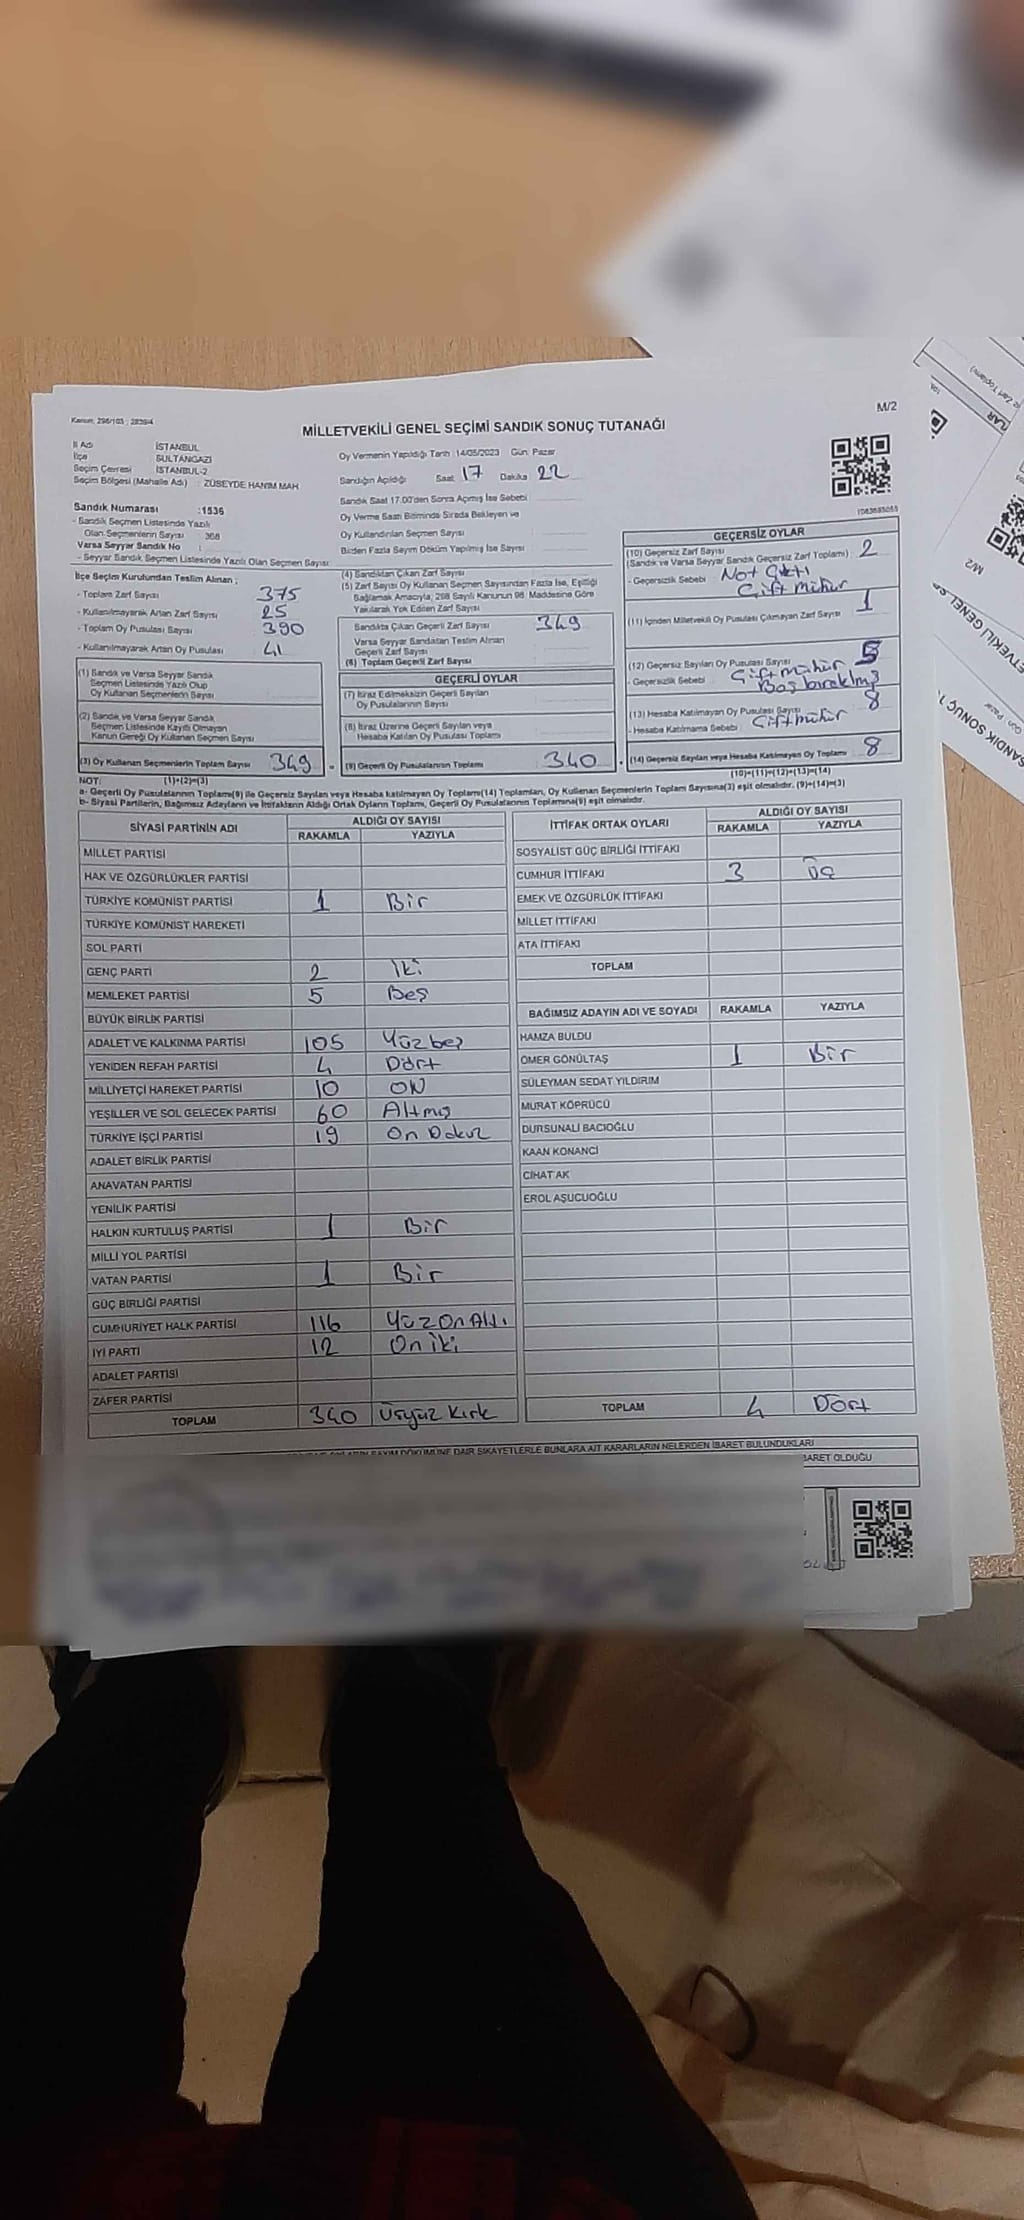 Kanun: 298/103 ; 2839/4
M/2
MİLLETVEKİLİ GENEL SEÇİMİ SANDIK SONUÇ TUTANAĞI
İl Adı İSTANBUL
İlçe SULTANGAZİ
Seçim Çevresi İSTANBUL-2
Seçim Bölgesi (Mahalle Adı) : ZÜBEYDE HANIM MAH
Sandık Numarası :1536
- Sandık Seçmen Listesinde Yazılı
Olan Seçmenlerin Sayısı : 368
Varsa Seyyar Sandık No :
- Seyyar Sandık Seçmen Listesinde Yazılı Olan Seçmen Sayısı
Oy Vermenin Yapıldığı Tarih :14/05/2023 Gün: Pazar
Sandığın Açıldığı Saat 17 Dakika 22
Sandık Saat 17.00'den Sonra Açılmış İse Sebebi
Oy Verme Saati Bitiminde Sırada Bekleyen ve
Oy Kullandırılan Seçmen Sayısı
Birden Fazla Sayım Döküm Yapılmış İse Sayısı
İlçe Seçim Kurulundan Teslim Alınan ;
- Toplam Zarf Sayısı 375
- Kullanılmayarak Artan Zarf Sayısı 25
- Toplam Oy Pusulası Sayısı 390
- Kullanılmayarak Artan Oy Pusulası 41
(1) Sandık ve Varsa Seyyar Sandık
Seçmen Listesinde Yazılı Olup
Oy Kullanan Seçmenlerin Sayısı
(2) Sandık ve Varsa Seyyar Sandık
Seçmen Listesinde Kayıtlı Olmayan
Kanun Gereği Oy Kullanan Seçmen Sayısı
(3) Oy Kullanan Seçmenlerin Toplam Sayısı 349
(4) Sandıktan Çıkan Zarf Sayısı
(5) Zarf Sayısı Oy Kullanan Seçmen Sayısından Fazla İse, Eşitliği
Sağlamak Amacıyla; 298 Sayılı Kanunun 98. Maddesine Göre
Yakılarak Yok Edilen Zarf Sayısı
Sandıkta Çıkan Geçerli Zarf Sayısı 349
Varsa Seyyar Sandıktan Teslim Alınan
Geçerli Zarf Sayısı
(6) Toplam Geçerli Zarf Sayısı
GEÇERLİ OYLAR
(7) İtiraz Edilmeksizin Geçerli Sayılan
Oy Pusulalarının Sayısı
(8) İtiraz Üzerine Geçerli Sayılan veya
Hesaba Katılan Oy Pusulası Toplamı
(9) Geçerli Oy Pusulalarının Toplamı 340
GEÇERSİZ OYLAR
(10) Geçersiz Zarf Sayısı
(Sandık ve Varsa Seyyar Sandık Geçersiz Zarf Toplamı) 2
- Geçersizlik Sebebi Not
Çift mühür
(11) İçinden Milletvekili Oy Pusulası Çıkmayan Zarf Sayısı 1
(12) Geçersiz Sayılan Oy Pusulası Sayısı
- Geçersizlik Sebebi Çift mühür
Boş bırakılmış
(13) Hesaba Katılmayan Oy Pusulası Sayısı 8
- Hesaba Katılmama Sebebi Çift mühür
(14) Geçersiz Sayılan veya Hesaba Katılmayan Oy Toplamı 8
NOT: (1)+(2)=(3)
(10)+(11)+(12)+(13)=(14)
a- Geçerli Oy Pusulalarının Toplam(9) ile Geçersiz Sayılan veya Hesaba Katılmayan Oy Toplam(14) Toplamları, Oy Kullanan Seçmenlerin Toplam Sayısına(3) eşit olmalıdır. (9)+(14)=(3)
b- Siyasi Partilerin, Bağımsız Adayların ve İttifakların Aldığı Ortak Oyların Toplamı, Geçerli Oy Pusulalarının Toplamına(9) eşit olmalıdır.
SİYASİ PARTİNİN ADI ALDIĞI OY SAYISI
RAKAMLA YAZIYLA
MİLLET PARTİSİ
HAK VE ÖZGÜRLÜKLER PARTİSİ
TÜRKİYE KOMÜNİST PARTİSİ 1 Bir
TÜRKİYE KOMÜNİST HAREKETİ
SOL PARTİ
GENÇ PARTİ 2 İki
MEMLEKET PARTİSİ 5 Beş
BÜYÜK BİRLİK PARTİSİ
ADALET VE KALKINMA PARTİSİ 105 Yüz beş
YENİDEN REFAH PARTİSİ 4 Dört
MİLLİYETÇİ HAREKET PARTİSİ 10 ON
YEŞİLLER VE SOL GELECEK PARTİSİ 60 Altmış
TÜRKİYE İŞÇİ PARTİSİ 19 On Dokuz
ADALET BİRLİK PARTİSİ
ANAVATAN PARTİSİ
YENİLİK PARTİSİ
HALKIN KURTULUŞ PARTİSİ 1 Bir
MİLLİ YOL PARTİSİ
VATAN PARTİSİ 1 Bir
GÜÇ BİRLİĞİ PARTİSİ
CUMHURİYET HALK PARTİSİ 116 Yüz On Altı
İYİ PARTİ 12 On iki
ADALET PARTİSİ
ZAFER PARTİSİ
TOPLAM 340 Üçyüz Kırk
İTTİFAK ORTAK OYLARI ALDIĞI OY SAYISI
RAKAMLA YAZIYLA
SOSYALİST GÜÇ BİRLİĞİ İTTİFAKI
CUMHUR İTTİFAKI 3 Üç
EMEK VE ÖZGÜRLÜK İTTİFAKI
MİLLET İTTİFAKI
ATA İTTİFAKI
TOPLAM
BAĞIMSIZ ADAYIN ADI VE SOYADI RAKAMLA YAZIYLA
HAMZA BULDU
ÖMER GÖNÜLTAŞ 1 Bir
SÜLEYMAN SEDAT YILDIRIM
MURAT KÖPRÜCÜ
DURSUNALİ BACIOĞLU
KAAN KONANCİ
CİHAT AK
EROL AŞUCUOĞLU
TOPLAM 4 Dört
SAYIM DÖKÜMÜNE DAİR ŞİKAYETLERLE BUNLARA AİT KARARLARIN NELERDEN İBARET BULUNDUKLARI
BARET OLDUĞU
M/2